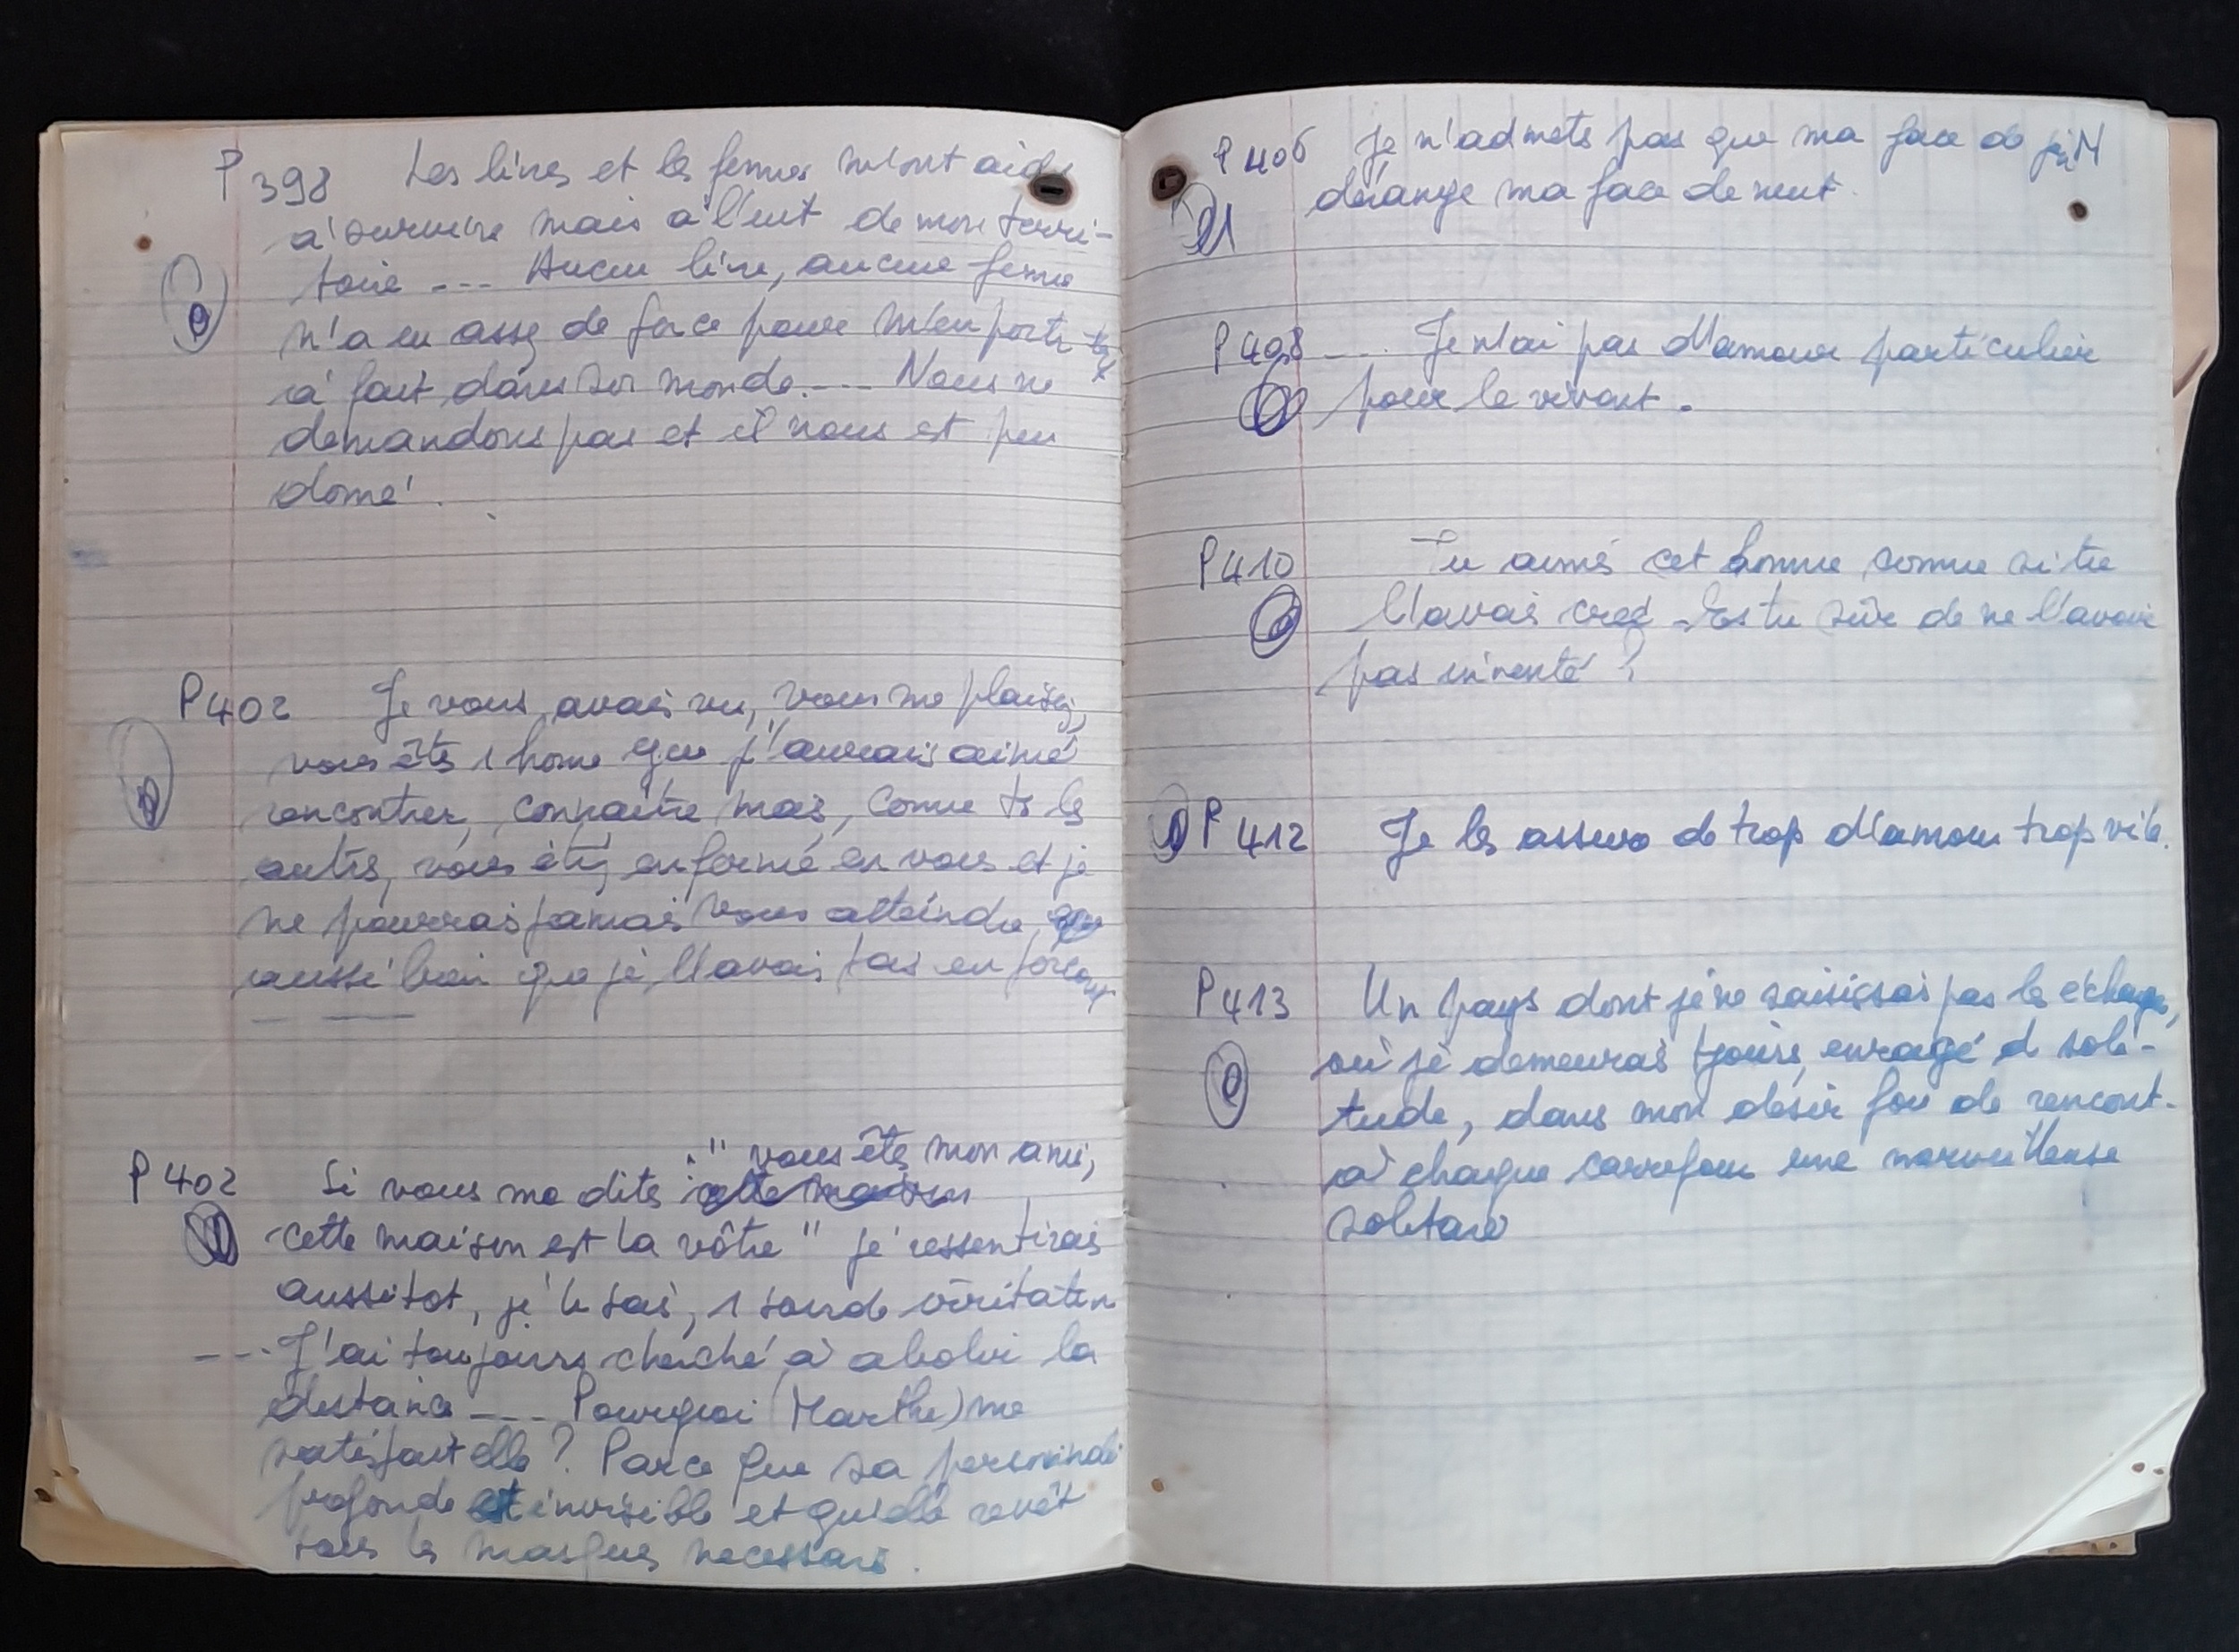 P 398 Les livres et les femmes m'ont aidé
à survivre mais à l'ent de mon terri-
toire --- Aucun livre, aucune femme
n'a eu assez de force pour m'emporter
à fait dans son monde. --- Nous ne
demandons pas et il nous est peu
donné.
P402 Je vous avais vu, vous me plaisez,
vous êtes 1 home que j'aurais aimé
rencontrer, connaître mais, comme ts les
autres, vous êtes enfermé en vous et je
ne pourrais jamais vous atteindre
aussi bien que je l'avais fais en
P 402 Si vous me dites : " vous êtes mon ami,
cette maison est la vôtre " je ressentirais
aussitot, je le sais, 1 sourde
--- J'ai toujours cherché à abolir la
distance --- Pourquoi (Marthe) me
satisfait elle ? Parce que sa
profonde est invisible et qu'elle revêt
tous les masques necessaires.
P 406 Je n'admets pas que ma face de
dérange ma face de nuit.
P 408 --- Je n'ai pas d'amour particulier
pour le vivant.
P410 Tu aimes cet homme comme si tu
l'avais créé - Es tu sûr de ne l'avoir
pas inventé ?
P 412 Je les assure de trop d'amour trop vite.
P413 Un pays dont je ne saisissais pas les échanges,
où je demeurais tjours, enragé d soli-
tude, dans mon désir fou de rencont.
à chaque carrefour une merveilleuse
solitaire